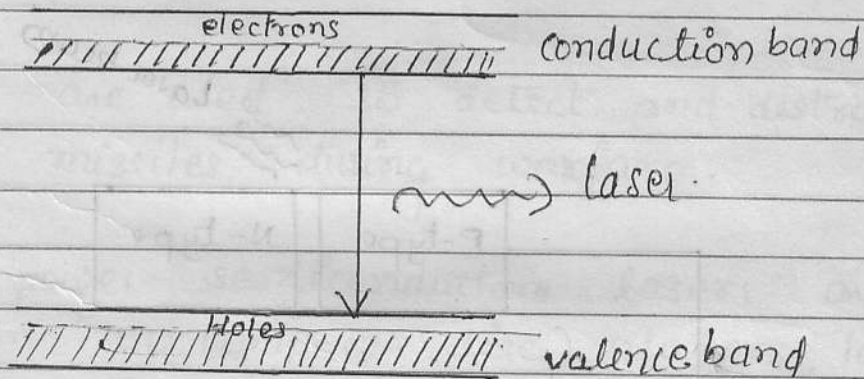 electrons
conduction band
laser.
Holes
valence band